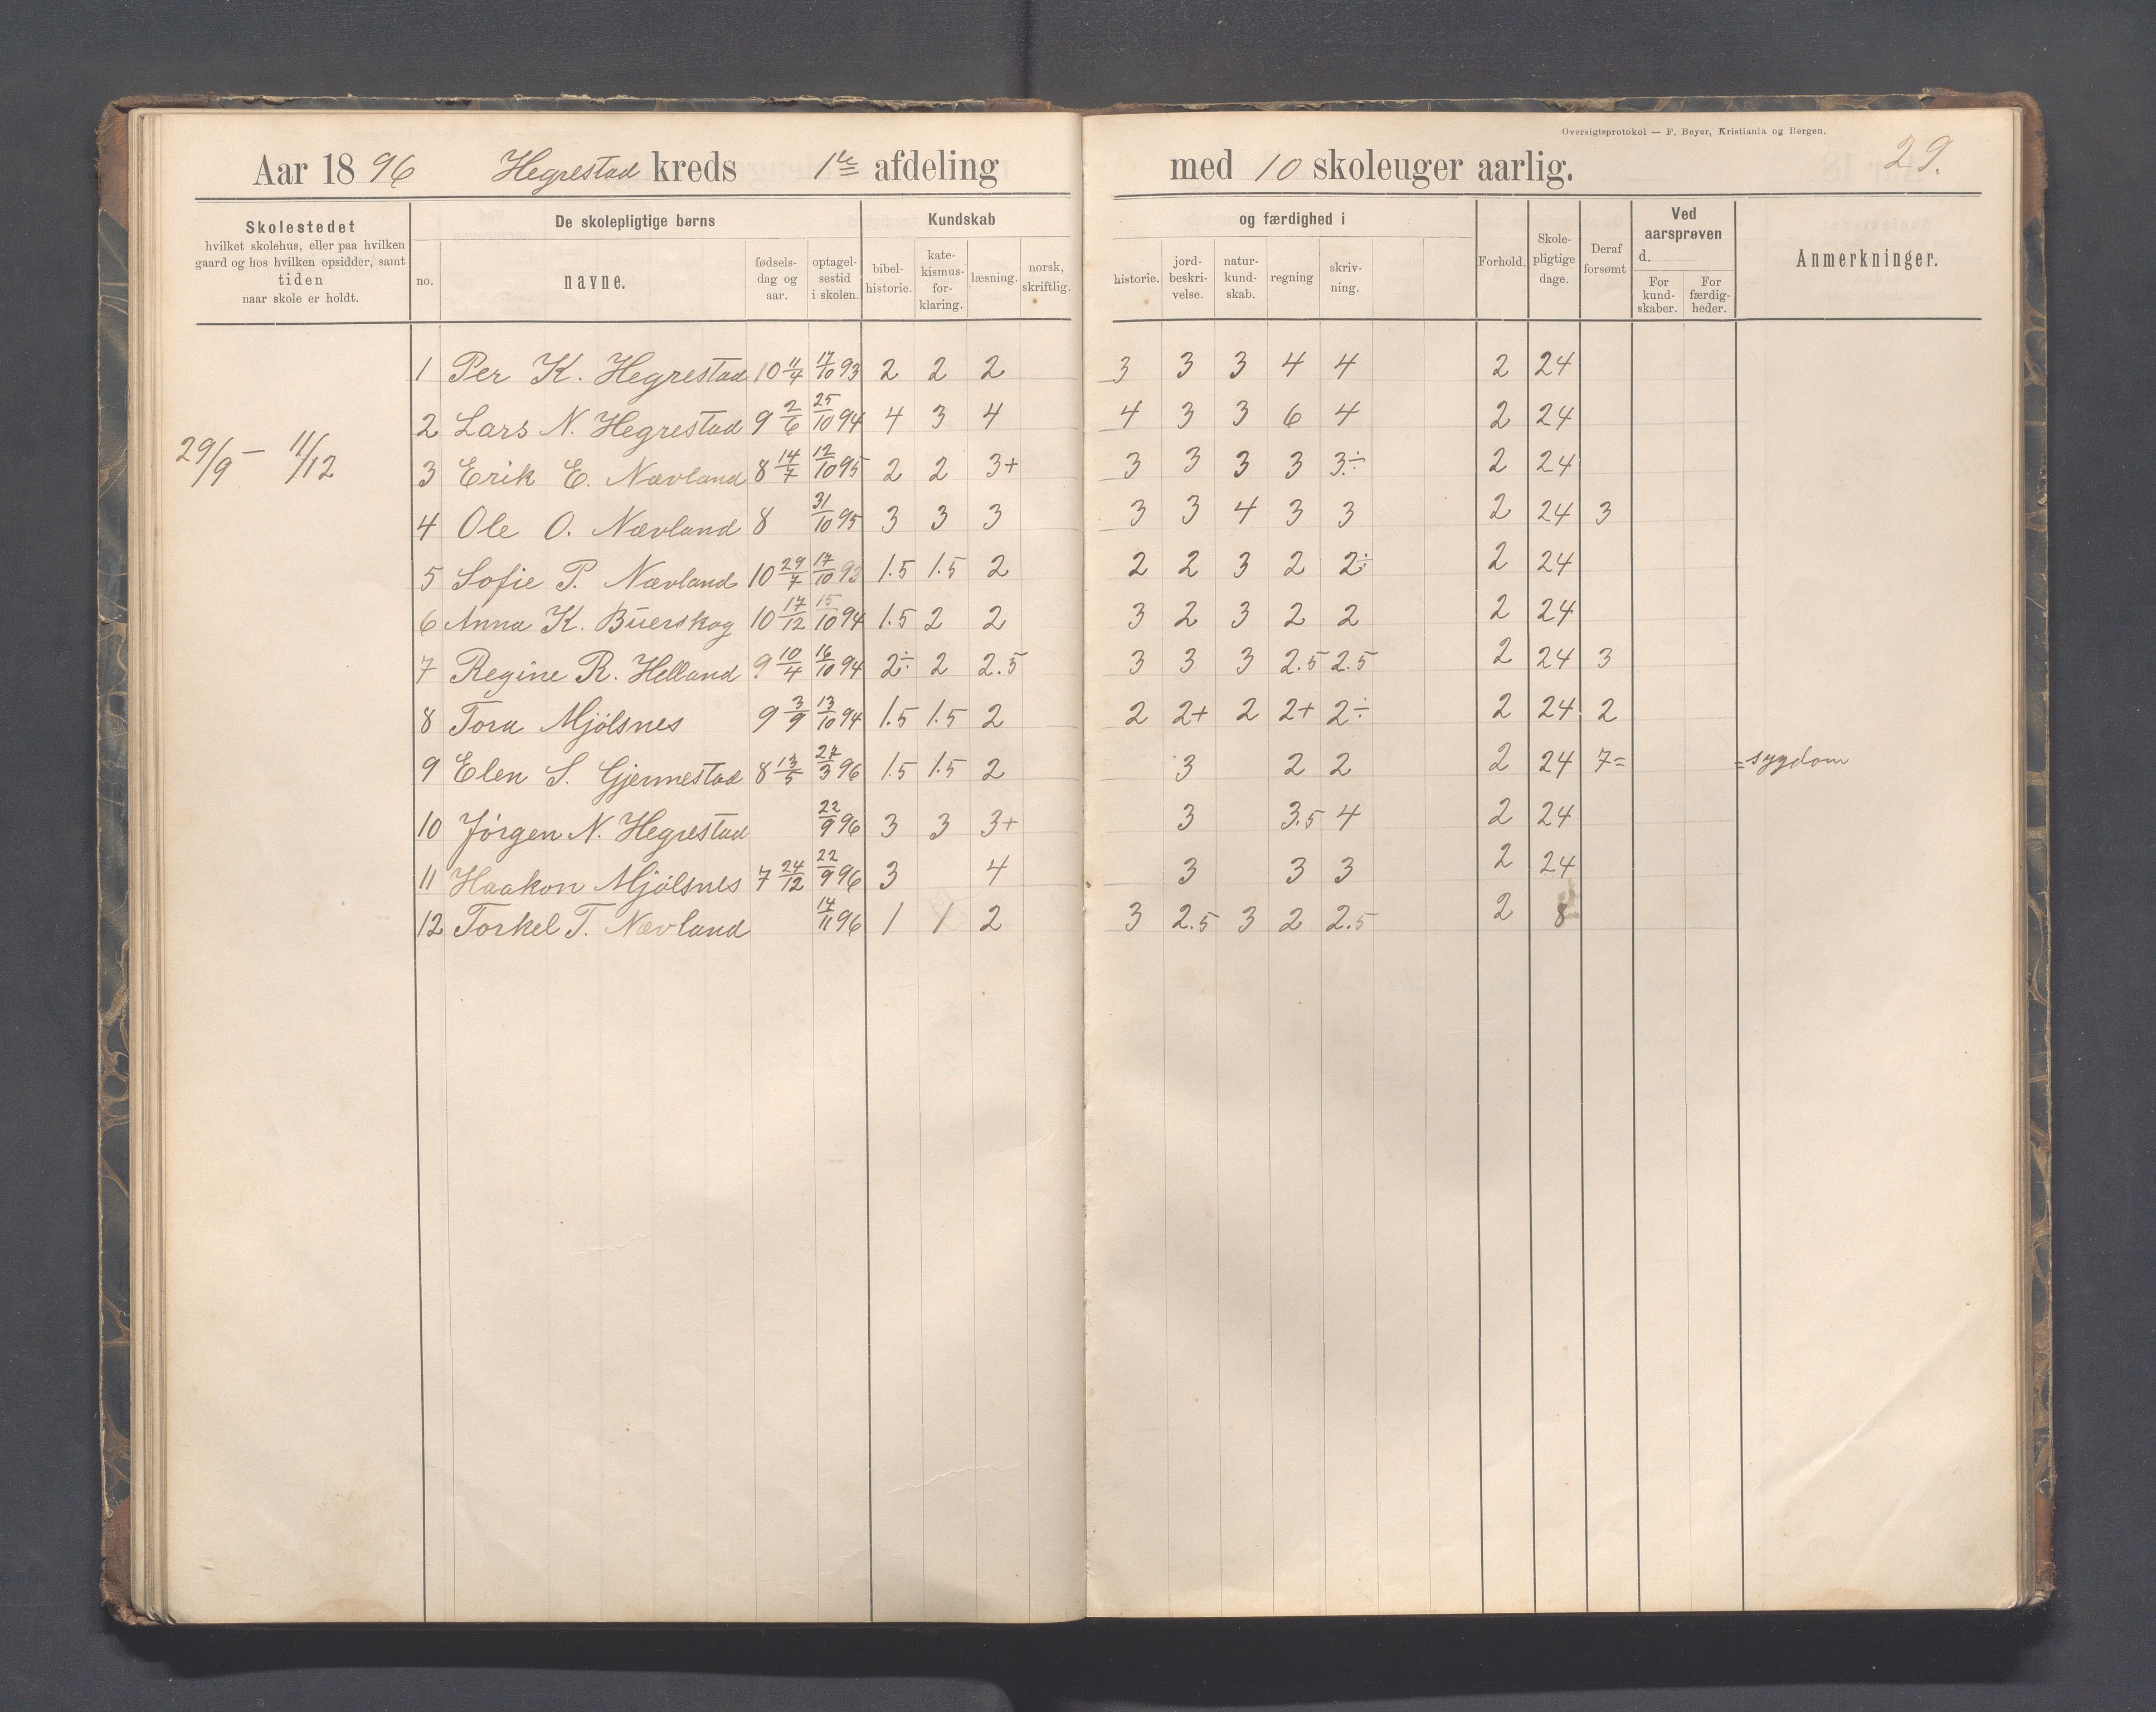 Oversigtsprotokol — F. Beyer, Kristiania og Bergen.
29.
Aar 1896 Hegrestad kreds 1ste afdeling med 10 skoleuger aarlig.
Skolestedet
hvilket skolehus, eller paa hvilken
gaard og hos hvilken opsidder, samt
tiden
naar skole er holdt.
De skolepligtige børns
no.
navne.
fødsels-
dag og
aar.
optagel-
sestid
i skolen.
Kundskab
bibel-
historie.
kate-
kismus-
for-
klaring.
læsning.
norsk,
skriftlig.
og færdighed i
historie.
jord-
beskri-
velse.
natur-
kund-
skab.
regning
skriv-
ning.
Forhold.
Skole-
pligtige
dage.
Deraf
forsømt
Ved
aarsprøven
d.
For
kund-
skaber.
For
færdig-
heder.
Anmerkninger.
29/9 – 11/12
1 Per K. Hegrestad 10 11/4 17/10 93 2 2 2 3 3 3 4 4 2 24
2 Lars N. Hegrestad 9 2/6 25/10 94 4 3 4 4 3 3 6 4 2 24
3 Erik E. Nævland 8 14/7 12/10 95 2 2 3+ 3 3 3 3 3÷ 2 24
4 Ole O. Nævland 8 31/10 95 3 3 3 3 3 4 3 3 2 24 3
5 Sofie P. Nævland 10 29/7 17/10 93 1.5 1.5 2 2 2 3 2 2÷ 2 24
6 Anna K. Buerskog 10 17/12 15/10 94 1.5 2 2 3 2 3 2 2 2 24
7 Regine R. Helland 9 10/4 16/10 94 2÷ 2 2.5 3 3 3 2.5 2.5 2 24 3
8 Tora Mjølsnes 9 3/9 13/10 94 1.5 1.5 2 2 2+ 2 2+ 2÷ 2 24 2
9 Elen S. Gjermestad 8 13/5 27/3 96 1.5 1.5 2 3 2 2 2 24 7= =sygdom
10 Jørgen N. Hegrestad 22/9 96 3 3 3+ 3 3.5 4 2 24
11 Haakon Mjølsnes 7 24/12 22/9 96 3 4 3 3 3 2 24
12 Torkel T. Nævland 14/11 96 1 1 2 3 2.5 3 2 2.5 2 8